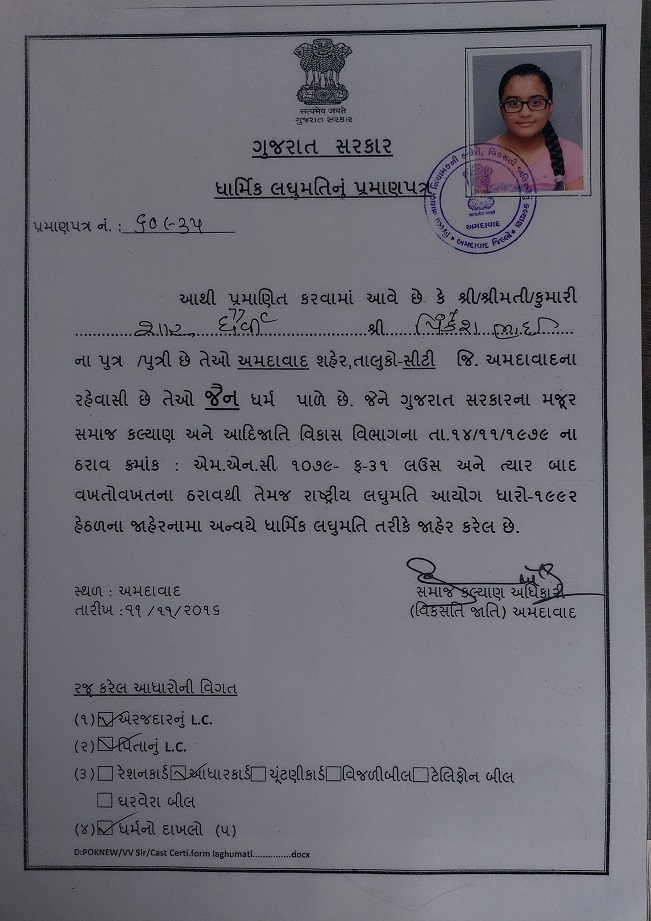 सत्यमेव जयते
ગુજરાત સરકાર
ગુજરાત સરકાર
ધાર્મિક લઘુમતિનું પ્રમાણપત્ર
અમદાવાદ
અમદાવાદ જિલ્લો
પ્રમાણપત્ર નં. : ૬૦૯-૩૫
આથી પ્રમાણિત કરવામાં આવે છે કે શ્રી/શ્રીમતી/કુમારી
શાહ ધ્વની શ્રી
ના પુત્ર /પુત્રી છે તેઓ અમદાવાદ શહેર,તાલુકો-સીટી જિ. અમદાવાદના
રહેવાસી છે તેઓ જૈન ધર્મ પાળે છે. જેને ગુજરાત સરકારના મજૂર
સમાજ કલ્યાણ અને આદિજાતિ વિકાસ વિભાગના તા.૧૪/૧૧/૧૯૭૯ ના
ઠરાવ ક્રમાંક : એમ.એન.સી ૧૦૭૯- ફ-૩૧ લઉસ અને ત્યાર બાદ
વખતોવખતના ઠરાવથી તેમજ રાષ્ટ્રીય લઘુમતિ આયોગ ધારો-૧૯૯૨
હેઠળના જાહેરનામા અન્વયે ધાર્મિક લઘુમતિ તરીકે જાહેર કરેલ છે.
સ્થળ : અમદાવાદ
તારીખ :૧૧ /૧૧/૨૦૧૬
સમાજ કલ્યાણ અધિકારી
(વિકસતિ જાતિ) અમદાવાદ
રજૂ કરેલ આધારોની વિગત
(૧) અરજદારનું L.C.
(૨) પિતાનું L.C.
(૩) રેશનકાર્ડ આધારકાર્ડ ચૂંટણીકાર્ડ વિજળીબીલ ટેલિફોન બીલ
ઘરવેરા બીલ
(૪) ધર્મનો દાખલો (૫)
D:POKNEW/VV Sir/Cast Certi.form laghumati...............docx